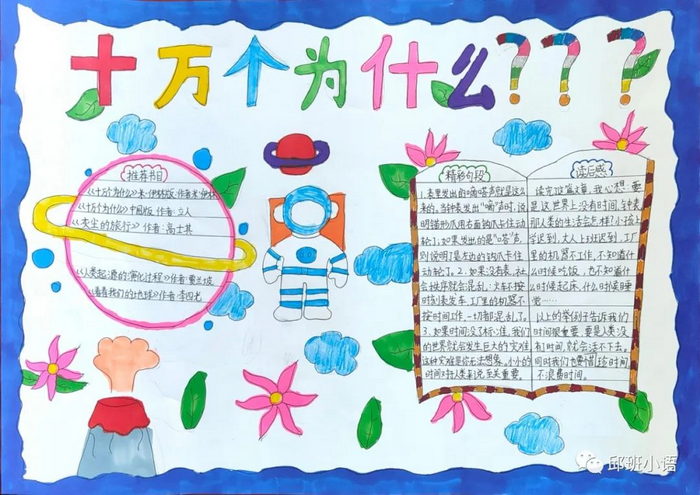 十万个为什么???
推荐书目
《十万个为什么》米·伊林版 作者:米·伊林
《十万个为什么》中国版 作者:立人
《灰尘的旅行》作者:高士其
《人类起源的演化过程》作者:贾兰坡
《看看我们的地球》作者:李四光
精彩句段
1.表里发出的“嘀嗒”声就是这么
来的,当钟表发出“嘀”声时,说
明锚形爪用右面钩爪卡住动
轮1,如果发出的是“嗒”声,
则说明了是左边的钩爪卡住
动轮了。2.如果没有表,社
会秩序就会混乱:火车不按
时刻表发车,工厂里的机器不
按时间工作,一切都混乱了。
3.如果时间没了标准,我们
的世界就会发生巨大的灾难
这种灾难是你无法想象。小小的
时间对于人类来说至关重要。
读后感
读完这篇文章,我心想:要
是这世界上没有时间、钟表
那人类的生活会怎样?小孩上
学迟到,大人上班迟到,工厂
里的机器不工作,不知道什
么时候吃饭,也不知道什
么时候起床,什么时候睡
觉……
以上的举例子告诉我们
时间很重要,要是人类没
有时间,就会活不下去。
同时我们也要惜时间
不浪费时间。
邱班小语